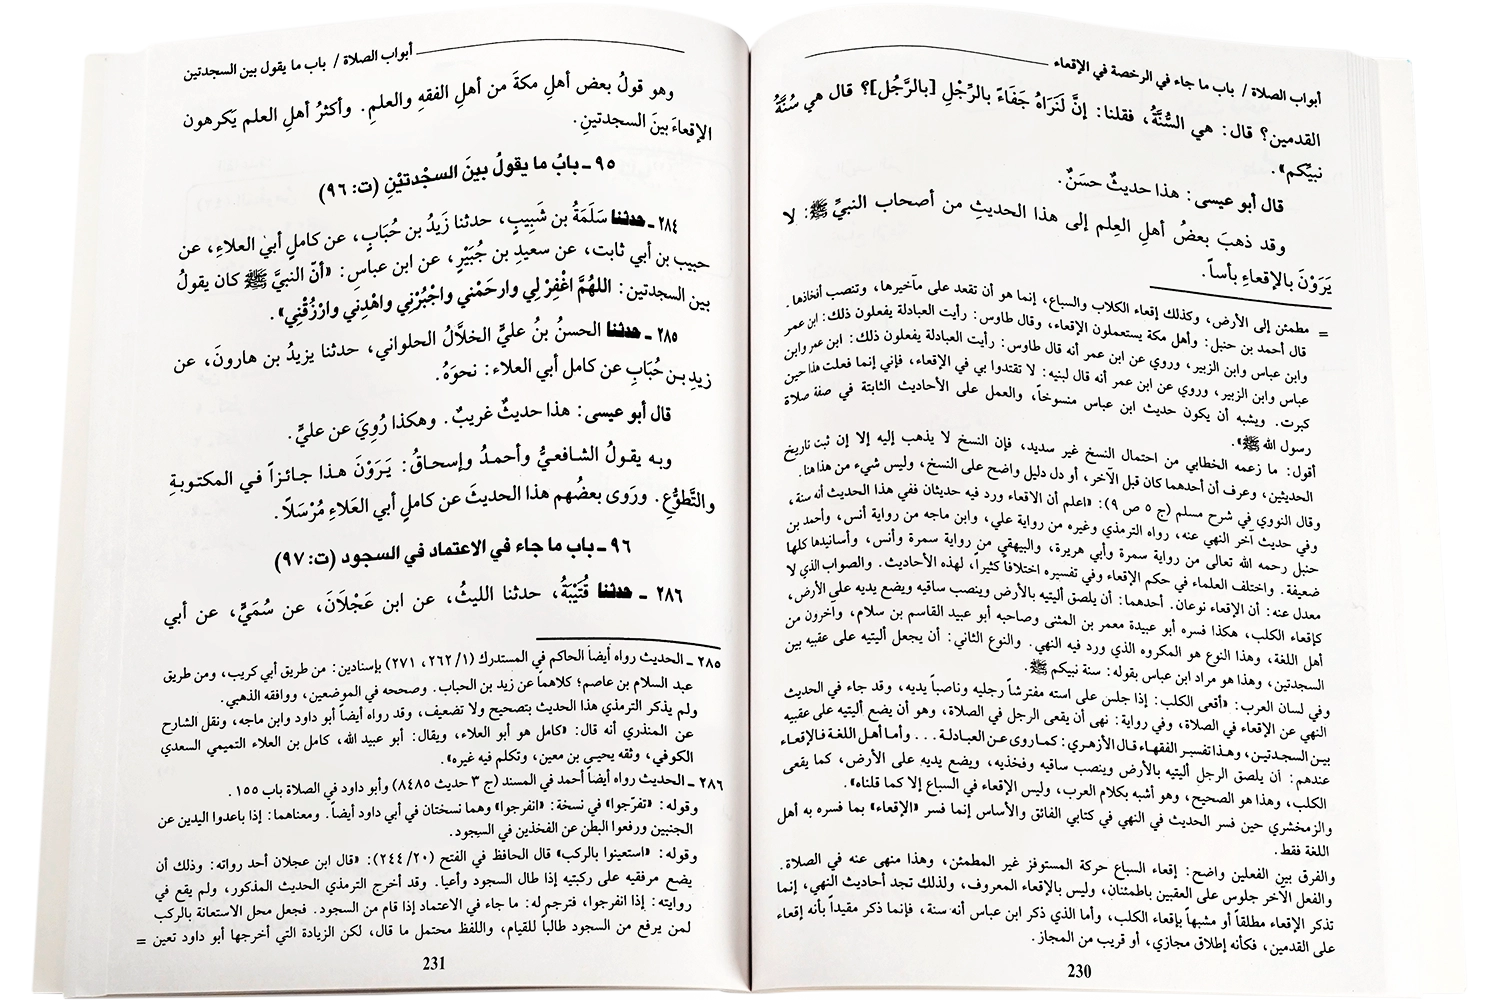 أبواب الصلاة / باب ما جاء في الرخصة في الإقعاء
القدمين؟ قال: هي السُّنَّةُ، فقلنا: إنَّ لَنَرَاهُ جَفَاءً بالرِّجْلِ [بالرَّجُل]؟ قال هي سُنَّةُ
نبيّكم».
قال أبو عيسى: هذا حديثٌ حسَنٌ.
وقد ذهبَ بعضُ أهلِ العِلم إلى هذا الحديثِ من أصحاب النبيِّ ﷺ: لا
يَرَوْنَ بالإقعاءِ بأساً.
= مطمئن إلى الأرض، وكذلك إقعاء الكلاب والسباع، إنما هو أن تقعد على مآخيرها، وتنصب أفخاذها.
قال أحمد بن حنبل: وأهل مكة يستعملون الإقعاء، وقال طاوس: رأيت العبادلة يفعلون ذلك: ابن عمر
وابن عباس وابن الزبير، وروي عن ابن عمر أنه قال طاوس: رأيت العبادلة يفعلون ذلك: ابن عمر وابن
عباس وابن الزبير، وروي عن ابن عمر أنه قال لبنيه: لا تقتدوا بي في الإقعاء، فإني إنما فعلت هذا حين
كبرت. ويشبه أن يكون حديث ابن عباس منسوخاً، والعمل على الأحاديث الثابتة في صفة صلاة
رسول الله ﷺ».
أقول: ما زعمه الخطابي من احتمال النسخ غير سديد، فإن النسخ لا يذهب إليه إلا إن ثبت تاريخ
الحديثين، وعرف أن أحدهما كان قبل الآخر، أو دل دليل واضح على النسخ، وليس شيء من هذا هنا.
وقال النووي في شرح مسلم (ج ٥ ص ٩): «اعلم أن الاقعاء ورد فيه حديثان ففي هذا الحديث أنه سنة،
وفي حديث آخر النهي عنه، رواه الترمذي وغيره من رواية علي، وابن ماجه من رواية أنس، وأحمد بن
حنبل رحمه الله تعالى من رواية سمرة وأبي هريرة، والبيهقي من رواية سمرة وأنس، وأسانيدها كلها
ضعيفة. واختلف العلماء في حكم الإقعاء وفي تفسيره اختلافاً كثيراً، لهذه الأحاديث. والصواب الذي لا
معدل عنه: أن الإقعاء نوعان. أحدهما: أن يلصق أليتيه بالأرض وينصب ساقيه ويضع يديه على الأرض،
كإقعاء الكلب، هكذا فسره أبو عبيدة معمر بن المثنى وصاحبه أبو عبيد القاسم بن سلام، وآخرون من
أهل اللغة، وهذا النوع هو المكروه الذي ورد فيه النهي. والنوع الثاني: أن يجعل أليتيه على عقبيه بين
السجدتين، وهذا هو مراد ابن عباس بقوله: سنة نبيكم ﷺ.
وفي لسان العرب: «أقعى الكلب: إذا جلس على استه مفترشاً رجليه وناصباً يديه، وقد جاء في الحديث
النهي عن الإقعاء في الصلاة، وفي رواية: نهى أن يقعى الرجل في الصلاة، وهو أن يضع أليتيه على عقبيه
بين السجدتين، وهذا تفسير الفقهاء قال الأزهري: كما روى عن العبادلة... وأما أهل اللغة فالإقعاء
عندهم: أن يلصق الرجل أليتيه بالأرض وينصب ساقيه وفخذيه، ويضع يديه على الأرض، كما يقعى
الكلب، وهذا هو الصحيح، وهو أشبه بكلام العرب، وليس الإقعاء في السباع إلا كما قلناه».
والزمخشري حين فسر الحديث في النهي في كتابي الفائق والأساس إنما فسر «الإقعاء» بما فسره به أهل
اللغة فقط.
والفرق بين الفعلين واضح: إقعاء السباع حركة المستوفز غير المطمئن، وهذا منهى عنه في الصلاة.
والفعل الآخر جلوس على العقبين باطمئنان، وليس بالإقعاء المعروف، ولذلك تجد أحاديث النهي، إنما
تذكر الإقعاء مطلقاً أو مشبهاً بإقعاء الكلب، وأما الذي ذكر ابن عباس أنه سنة، فإنما ذكر مقيداً بأنه إقعاء
على القدمين، فكأنه إطلاق مجازي، أو قريب من المجاز.
230
أبواب الصلاة / باب ما يقول بين السجدتين
وهو قولُ بعض أهلِ مكةَ من أهلِ الفقهِ والعلمِ. وأكثرُ أهلِ العلم يَكرهون
الإقعاءَ بينَ السجدتينِ.
٩٥ ـ بابُ ما يقولُ بينَ السجْدتيْنِ (ت: ٩٦)
٢٨٤ ـ حدثنا سَلَمَةُ بن شَبِيبٍ، حدثنا زَيدُ بن حُبَابٍ، عن كاملٍ أبي العلاءِ، عن
حبيب بن أبي ثابت، عن سعيدِ بن جُبَيْرٍ، عن ابن عباسٍ: «أنّ النبيَّ ﷺ كان يقولُ
بين السجدتين: اللهُمَّ اغْفِرْ لي وارحَمْني واجْبُرْني واهْدِني وارْزُقْنِي».
٢٨٥ ـ حدثنا الحسنُ بنُ عليٍّ الخلاَّلُ الحلواني، حدثنا يزيدُ بن هارونَ، عن
زيدِ بـن حُبَابِ عن كامل أبي العلاء: نحوَهُ.
قال أبو عيسى: هذا حديثٌ غريبٌ. وهكذا رُوِيَ عن عليٍّ.
وبه يقولُ الشافعيُّ وأحمدُ وإسحاقُ: يَرَوْنَ هذا جائزاً في المكتوبةِ
والتَّطوُّعِ. ورَوى بعضُهم هذا الحديثَ عن كاملٍ أبي العَلاءِ مُرْسَلاً.
٩٦ ـ باب ما جاء في الاعتماد في السجود (ت: ٩٧)
٢٨٦ ـ حدثنا قُتَيْبَةُ، حدثنا الليثُ، عن ابن عَجْلاَنَ، عن سُمَيٍّ، عن أبي
٢٨٥ ـ الحديث رواه أيضاً الحاكم في المستدرك (١/ ٢٦٢، ٢٧١) بإسنادين: من طريق أبي كريب، ومن طريق
عبد السلام بن عاصم؛ كلاهما عن زيد بن الحباب. وصححه في الموضعين، ووافقه الذهبي.
ولم يذكر الترمذي هذا الحديث بتصحيح ولا تضعيف، وقد رواه أيضاً أبو داود وابن ماجه، ونقل الشارح
عن المنذري أنه قال: «كامل هو أبو العلاء، ويقال: أبو عبيد الله، كامل بن العلاء التميمي السعدي
الكوفي، وثقه يحيى بن معين، وتكلم فيه غيره».
٢٨٦ ـ الحديث رواه أيضاً أحمد في المسند (ج ٣ حديث ٨٤٨٥) وأبو داود في الصلاة باب ١٥٥.
وقوله: «تفرّجوا» في نسخة: «انفرجوا» وهما نسختان في أبي داود أيضاً. ومعناهما: إذا باعدوا اليدين عن
الجنبين ورفعوا البطن عن الفخذين في السجود.
وقوله: «استعينوا بالركب» قال الحافظ في الفتح (٢٠/ ٢٤٤): «قال ابن عجلان أحد رواته: وذلك أن
يضع مرفقيه على ركبتيه إذا طال السجود وأعيا. وقد أخرج الترمذي الحديث المذكور، ولم يقع في
روايته: إذا انفرجوا، فترجم له: ما جاء في الاعتماد إذا قام من السجود. فجعل محل الاستعانة بالركب
لمن يرفع من السجود طالباً للقيام، واللفظ محتمل ما قال، لكن الزيادة التي أخرجها أبو داود تعين =
231